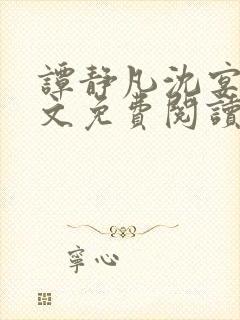 譚靜凡沈宴
文免費閱讀
寧心